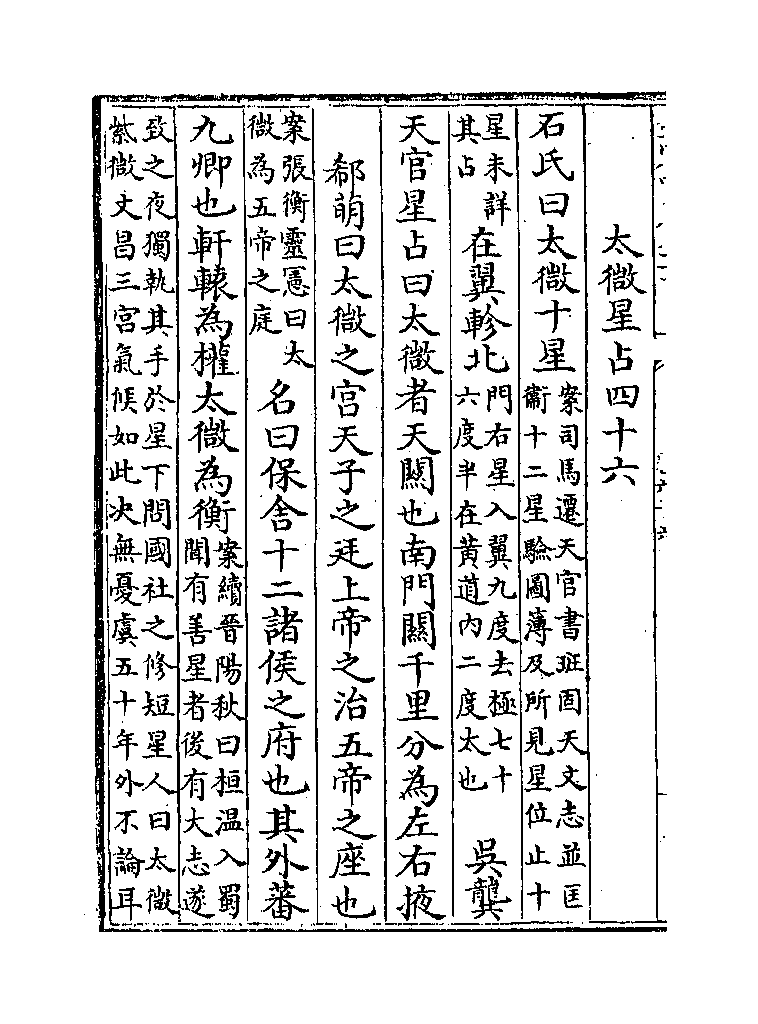 太微星占四十六
石氏曰太微十星案司馬遷天官書班固天文志並匡
衛十二星驗圖簿及所見星位止十
星未詳
其占在翼軫北門右星入翼九度去極七十
六度半在黃道内二度太也吳龔
天官星占曰太微者天闕也南門闕千里分為左右掖
郗萌曰太微之宫天子之廷上帝之治五帝之座也
案張衡靈憲曰太
微為五帝之庭名曰保舍十二諸侯之府也其外蕃
九卿也軒轅為權太微為衡案續晉陽秋曰桓温入蜀
聞有善星者後有大志遂
致之夜獨執其手於星下問國社之修短星人曰太微
紫微文昌三宫氣候如此决無憂虞五十年外不論耳